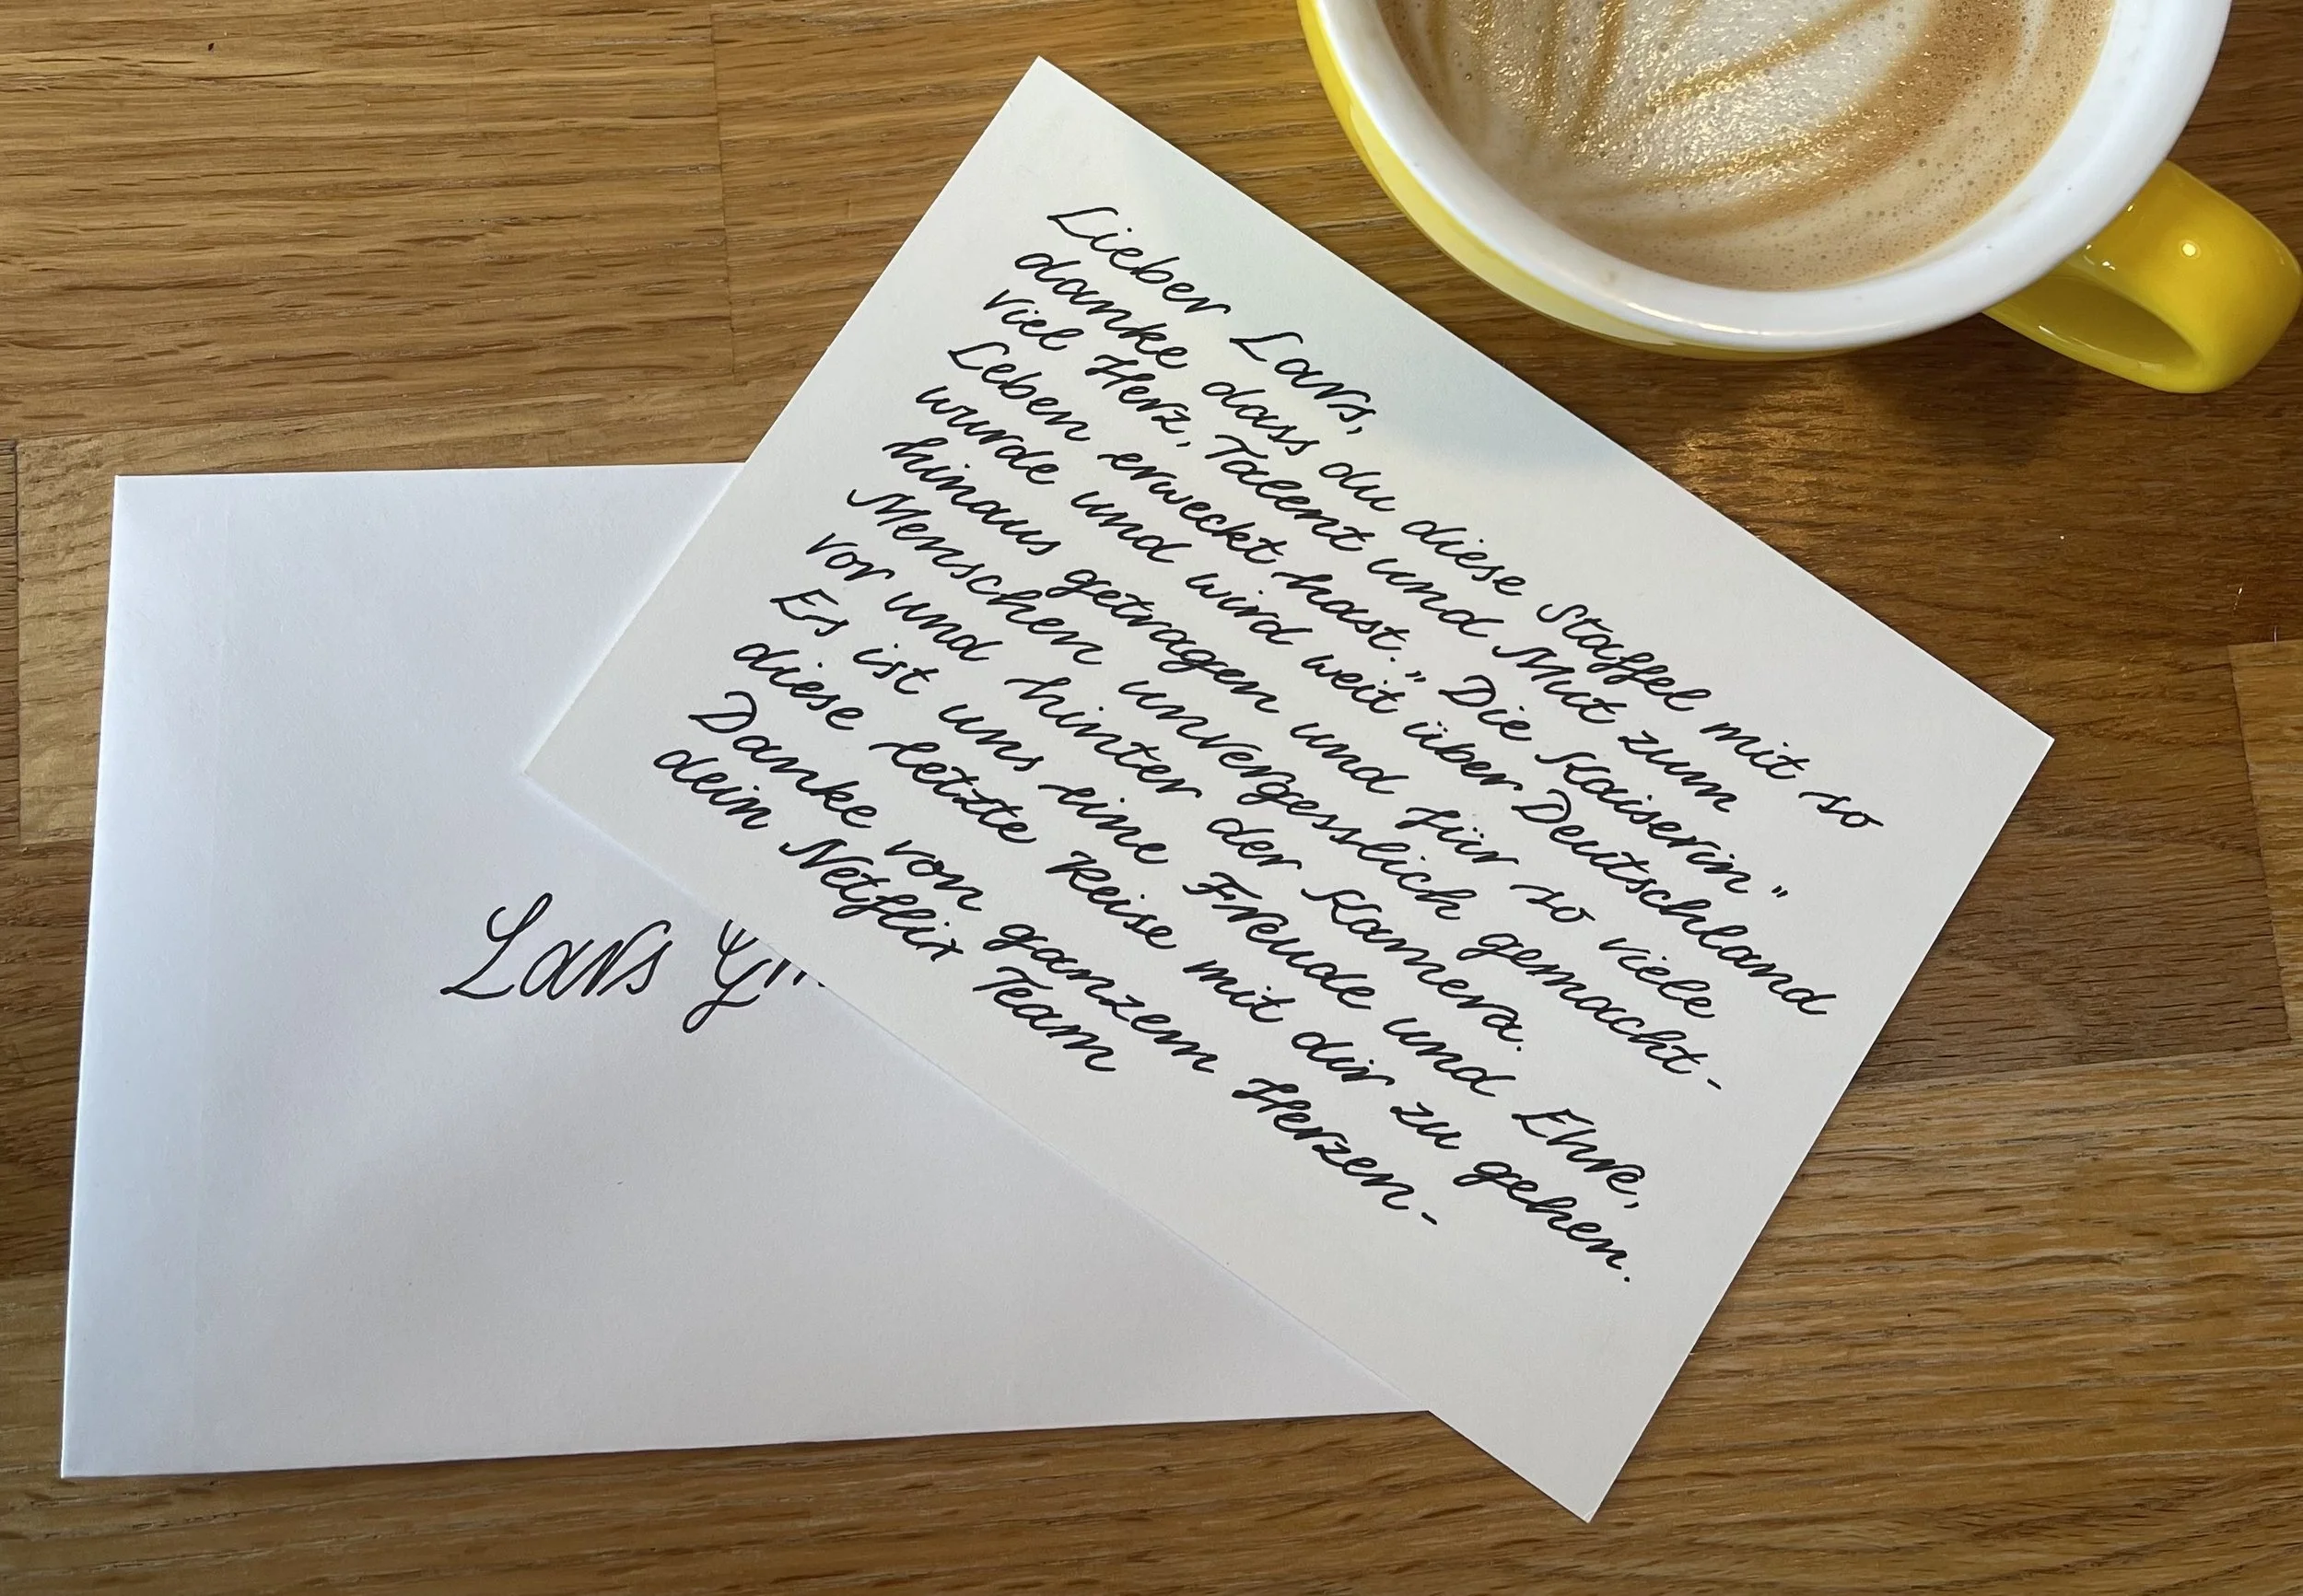 Lieber Lars,
danke dass du diese Staffel mit so
viel Herz, Talent und Mut zum
Leben erweckt hast. "Die Kaiserin"
wurde und wird weit über Deutschland
hinaus getragen und für so viele
Menschen unvergesslich gemacht-
vor und hinter der Kamera.
Es ist uns eine Freude und Ehre,
diese letzte Reise mit dir zu gehen.
Danke von ganzem Herzen-
dein Netflix Team
Lars